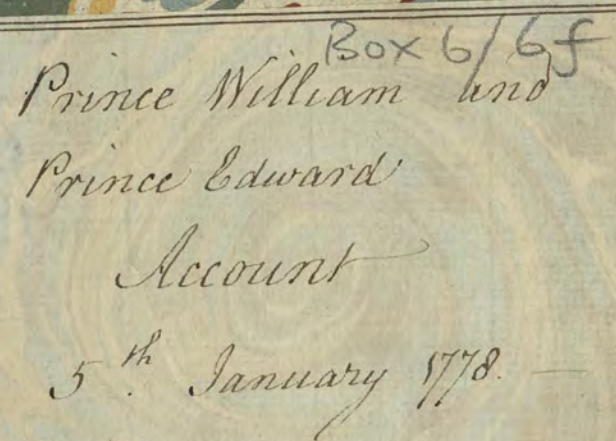 Box 6/6f
Prince William and
Prince Edward
Account
5th. January 1778. —